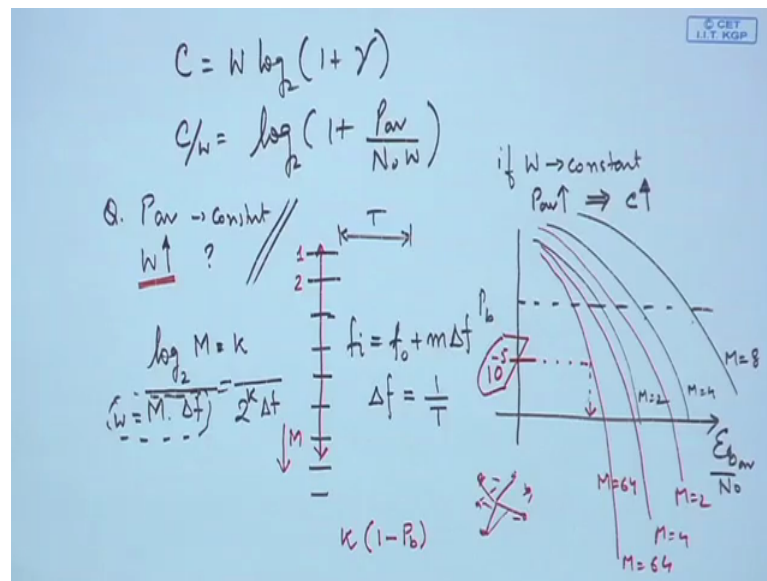 © CET
I.I.T. KGP
C = W log₂(1 + γ)
C/W = log₂(1 + Pav/N₀W)
if W → constant
Pav↑ ⇒ C↑
Q. Pav → constant
W↑ ?
T
1
2
M
log₂ M = k
(W = M. Δf)
2^k Δf
fi = f₀ + mΔf
Δf = 1/T
k (1 - Pb)
Pb
10^-5
M=8
M=2
M=4
M=64
M=2
M=4
M=64
Ebav/N₀